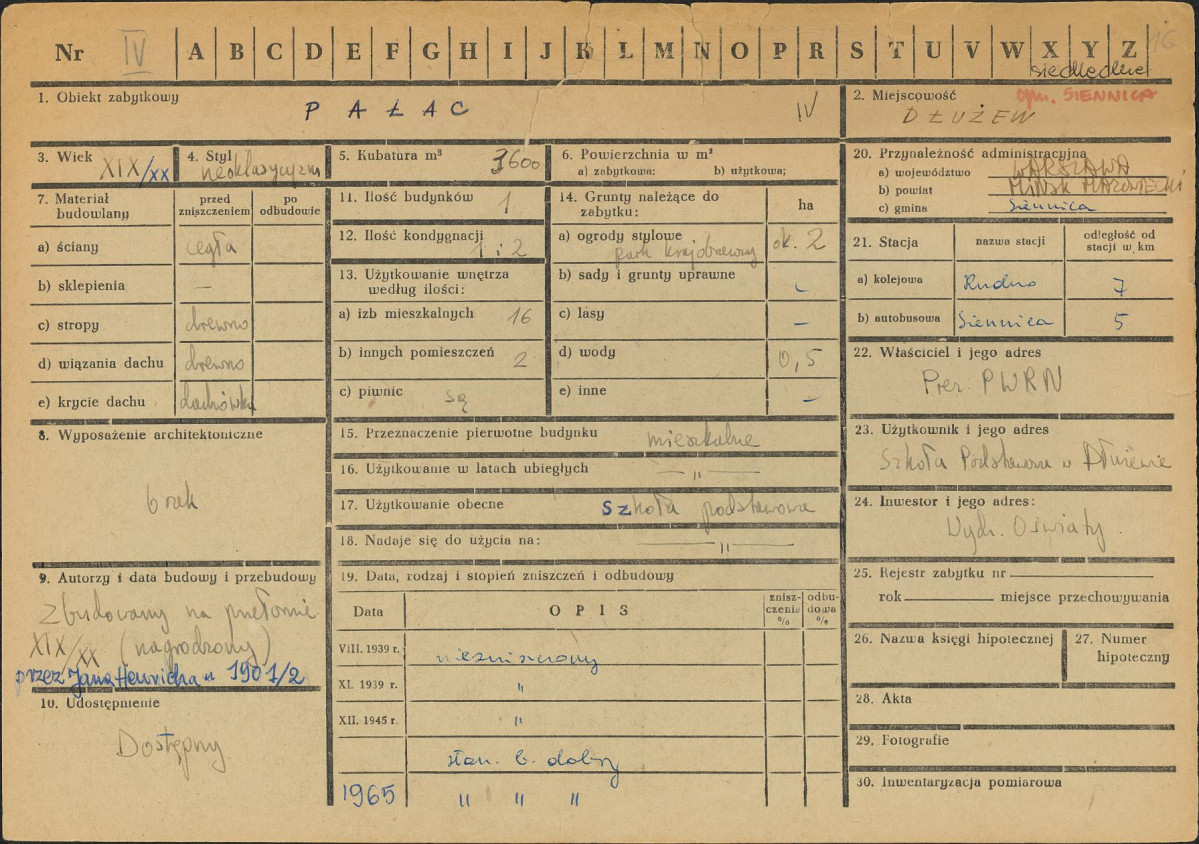 Nr IV A B C D E F G H I J K L M N O P R S T U V W X Y Z 16
siedleckie
1. Obiekt zabytkowy
PAŁAC IV
2. Miejscowość gm. SIENNICA
DŁUŻEW
3. Wiek
XIX/XX
4. Styl
neoklasycyzm
5. Kubatura m³ 3600
6. Powierzchnia w m²
a) zabytkowa: b) użytkowa;
20. Przynależność administracyjna
a) województwo WARSZAWA
b) powiat MIŃSK MAZOWIECKI
c) gmina Siennica
7. Materiał budowlany
przed zniszczeniem
po odbudowie
a) ściany cegła
b) sklepienia —
c) stropy drewno
d) wiązania dachu drewno
e) krycie dachu dachówka
8. Wyposażenie architektoniczne
brak
9. Autorzy i data budowy i przebudowy
Zbudowany na przełomie
XIX/XX (nagrodzony)
przez Jana Heuricha w 1901/2
10. Udostępnienie
Dostępny
11. Ilość budynków 1
12. Ilość kondygnacji
1 i 2
13. Użytkowanie wnętrza
według ilości:
a) izb mieszkalnych 16
b) innych pomieszczeń 2
c) piwnic są
14. Grunty należące do
zabytku: ha
a) ogrody stylowe ok. 2
park krajobrazowy
b) sady i grunty uprawne -
c) lasy –
d) wody 0,5
e) inne –
15. Przeznaczenie pierwotne budynku mieszkalne
16. Użytkowanie w latach ubiegłych — " —
17. Użytkowanie obecne Szkoła podstawowa
18. Nadaje się do użycia na: — " —
19. Data, rodzaj i stopień zniszczeń i odbudowy
Data OPIS znisz-czenie % odbu-dowa %
VIII. 1939 r. niezniszczony
XI. 1939 r. "
XII. 1945 r. "
stan. b. dobry
1965 " " "
21. Stacja
nazwa stacji
odległość od stacji w km
a) kolejowa Rudno 7
b) autobusowa Siennica 5
22. Właściciel i jego adres
Prez. PWRN
23. Użytkownik i jego adres
Szkoła Podstawowa w Dłużewie
24. Inwestor i jego adres:
Wydz. Oświaty.
25. Rejestr zabytku nr
rok miejsce przechowywania
26. Nazwa księgi hipotecznej
27. Numer hipoteczny
28. Akta
29. Fotografie
30. Inwentaryzacja pomiarowa